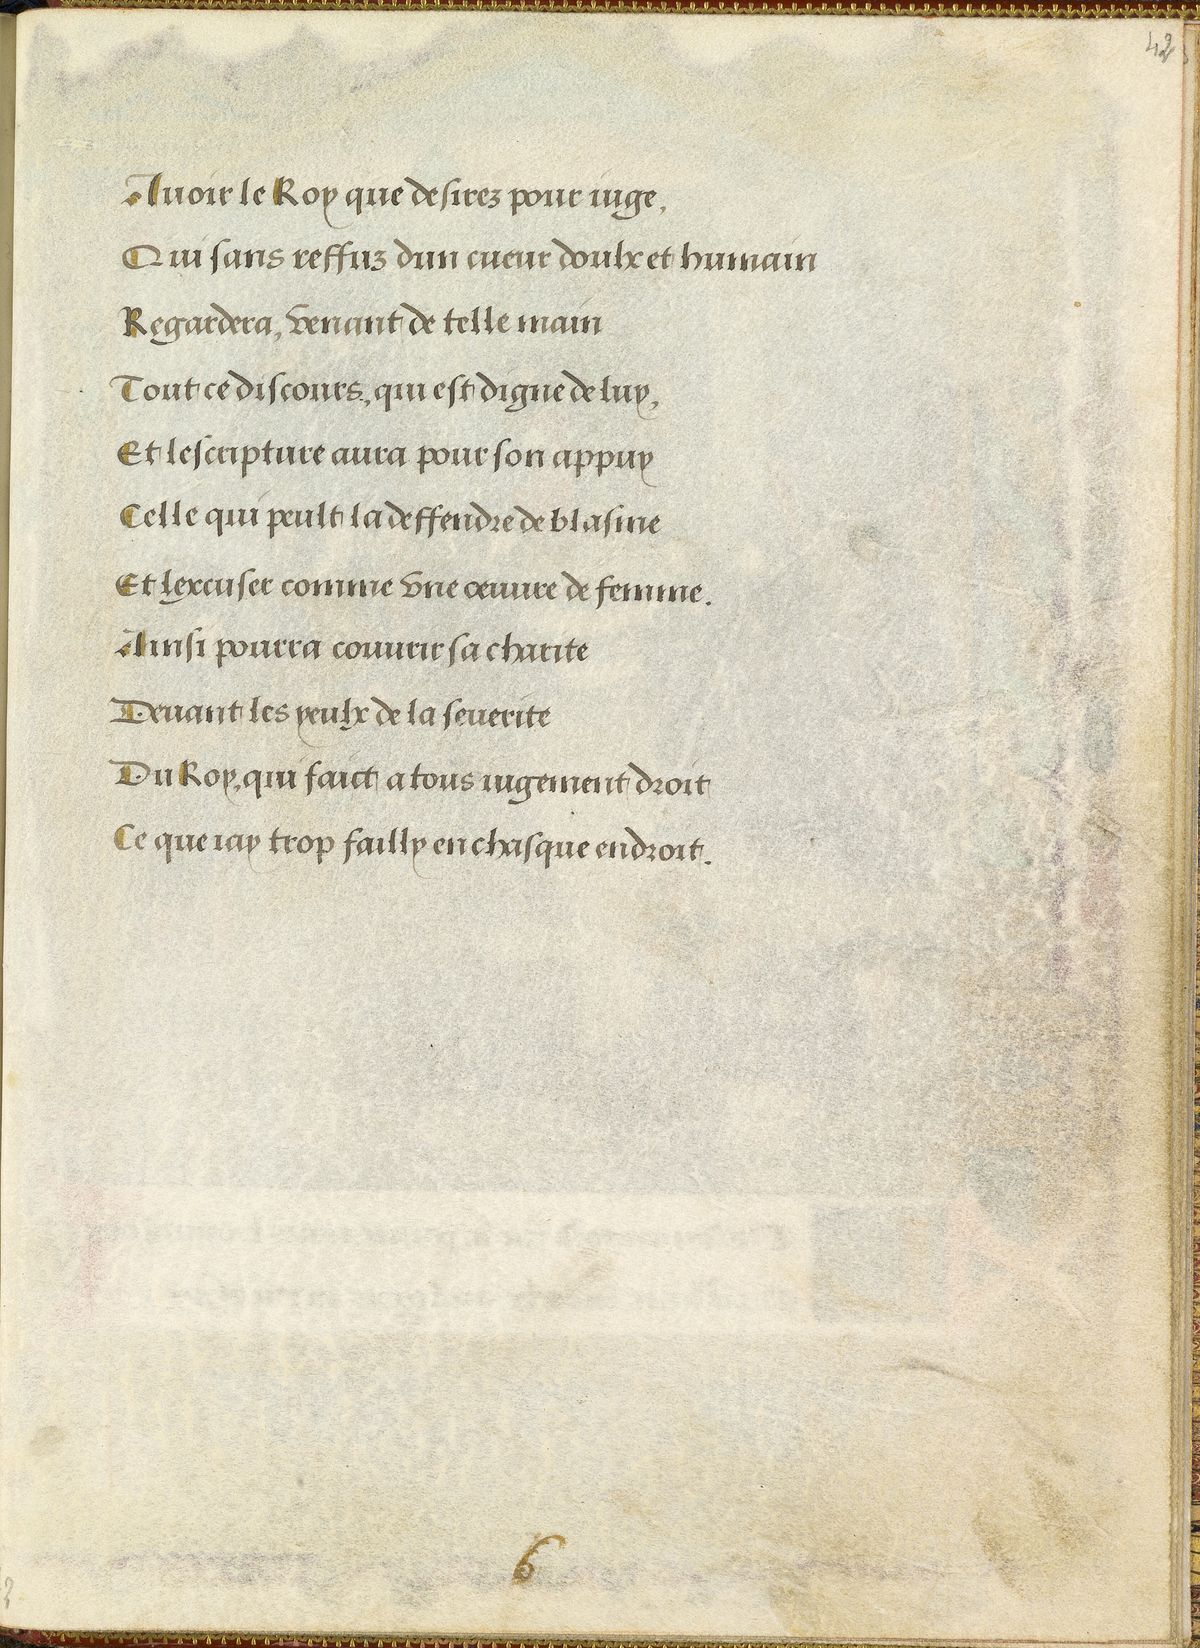 42
Auoir le Roy que desirez pour iuge,
Qui sans reffuz dun cueur doulx et humain
Regardera, venant de telle main
Tout ce discours, qui est digne de luy,
Et lescripture aura pour son appuy
Celle qui peult la deffendre de blasme
Et lexcuser comme vne oeuure de femme.
Ainsi pourra couurir sa charite
Deuant les yeulx de la seuerite
Du Roy, qui faict a tous iugement droit
Ce que iay trop failly en chasque endroit.
6